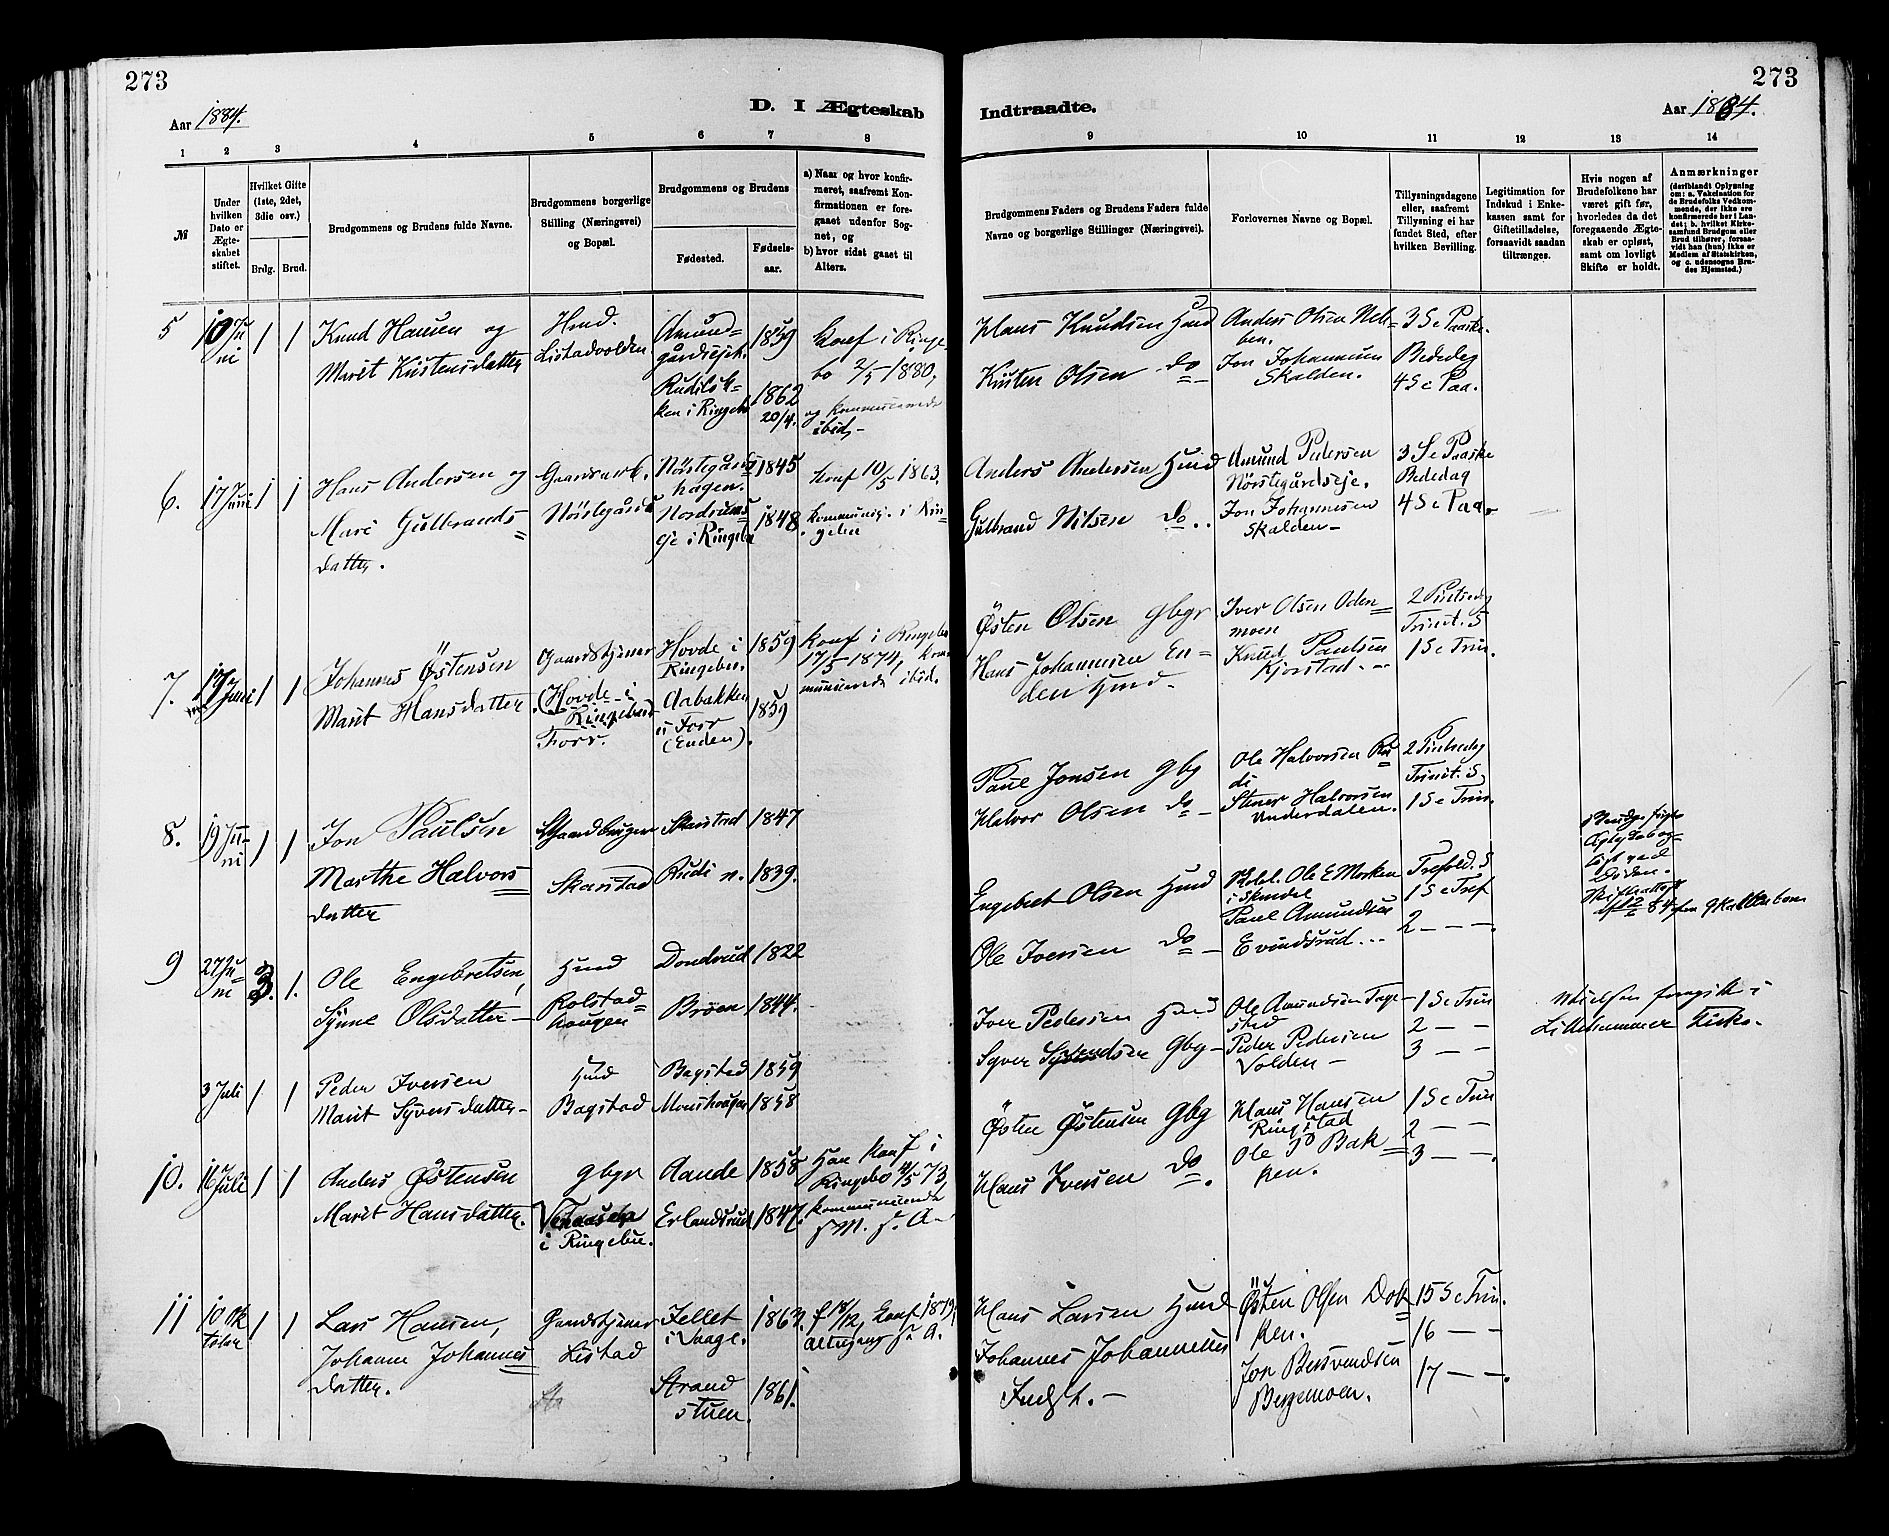 273
Aar 1884.
D. I Ægteskab
1 2 3 4 5 6 7 8
№
Under hvilken Dato er Ægteskabet stiftet.
Hvilket Gifte (1ste, 2det, 3die osv.)
Brdg. Brud.
Brudgommens og Brudens fulde Navne.
Brudgommens borgerlige Stilling (Næringsvei) og Bopæl.
Brudgommens og Brudens
Fødested. Fødselsaar.
a) Naar og hvor konfirmeret, saafremt Konfirmationen er foregaaet udenfor Sognet, og
b) hvor sidst gaaet til Alters.
5 10 Juni 1 1 Knud Hansen og Hmd. Amund- 1859 Konf i Ringe-
Marit Kristensdatter Listadvolden gårdsejet. bo 2/5 1880,
1862 og kommunicerede
ken i Ringebu 20/4. ibid.
6. 17 Juni 1 1 Hans Andersen og Gaardmand. Nørstegårds- 1845 Konf 10/5 1863.
Mari Gulbrands- Nørstegård hagen. kommunic. i Rin-
datter. Nordrums- 1848 gebu
eje i Ringebu
7. 17 Juni 1 1 Johannes Østensen Gaardstjener Hovde i 1859 Konf i Ringebu
Marit Hansdatter (Hovde i Ringebu. 17/5 1874, kom-
Ringebu) Aabakken 1859 municerede ibid.
Forr. i Forr
(Enden).
8. 19 Juni 1 1 Jon Paulsen Gaardbruger Skarstad 1847
Marthe Halvors- Skarstad Rudi n. 1839.
datter
9 27 Juni 3. 1. Ole Engebretsen, Hmd Dondrud 1822
Synne Olsdatter Rolstad- Brøen 1844.
haugen
3 Juli 1 1 Peder Iversen Hmd Bagstad 1859
Marit Syversdatter Bagstad Monshaugen 1858
10. 16 Juli 1 1 Anders Østensen gbgr Aande 1858 Han Konf i
Marit Hansdatter. Ringebo 4/5 73,
i Ringebu. Erlandsrud 1847. kommunicerede
s. A.
11 10 Oktober 1 1 Lars Hansen, Gaardstjener Jellet 1863. f 18/12, Konf 1879,
Johanne Johannes- Listad i Vaage. altergang s. A.
datter. Strand- 1861.
stuen.
273
Indtraadte.
Aar 1884.
9 10 11 12 13 14
Brudgommens Faders og Brudens Faders fulde Navne og borgerlige Stillinger (Næringsvei).
Forlovernes Navne og Bopæl.
Tillysningsdagene eller, saafremt Tillysning ei har fundet Sted, efter hvilken Bevilling.
Legitimation for Indskud i Enkekassen samt for Giftetilladelse, forsaavidt saadan tiltrænges.
Hvis nogen af Brudefolkene har været gift før, hvorledes da det foregaaende Ægteskab er opløst, samt om lovligt Skifte er holdt.
Anmærkninger (deriblandt Oplysning om: a. Vakcination for Brudefolks Vedkommende, der ikke ere konfirmerede her i Landet; b. hvilket Kirkesamfund Brudgom eller Brud tilhører, forsaavidt han (hun) ikke er Medlem af Statskirken, og c. udensogns Brudes Hjemsted.)
Hans Knudsen Hmd Anders Olsen 3 S e Paaske.
Kristen Olsen do Jon Johannesen Bededag
Skalden. 4 S e Paa.
Anders Andersen Hmd Amund Pedersen 3 S e Paaske
Nørstegårdseje. Bededag
Gulbrand Nilsen do.. Jon Johannesen 4 S e Paa.
Skalden
Østen Olsen gbgr Iver Olsen Oden- 2 Pintsedag
moen Trinit. S
Hans Johannesen En- Knud Paulsen 1 S e Trin.
den Hmd. Kjorstad
Paul Jonsen gbg Ole Halvorsen Ru- 2 Pintsedag
di Trinit. S
Halvor Olsen do Stener Halvorsen 1 S e Trin.
Underdalen.
Engebret Olsen Hmd Ole E Morken Trefold. S
1 S e Tref
Ole Iversen do Paul Amundsen 2 — — —.
Evindsrud...
Brudg. forrige
Ægteskab op-
løst ved
Døden.
Iver Pedersen Hmd Ole Amundsen Tage- 1 S e Trin
stad 2 — —
Syver Syvertsen Gbg Peder Pedersen 3 — —
Volden
Vielsen foregik i
Lillehammer Kirke.
Østen Østensen Gbg Hans Hansen 1 S e Trin
Ringstad 2 — —
Hans Iversen do. Ole P Bak- 3 — —.
ken.
Hans Larsen Hmd Østen Olsen Dok- 15 S e Trin.
ken. 16 — —
Johannes Johannessen Jon Bersvendsen 17 — —.
Inds't. Bergemoen.